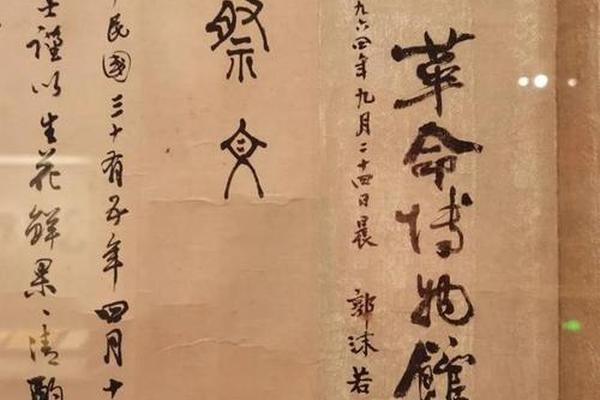 革命博物館
九六四年九月二十四日晨 郭沫若
祭文
民國三十有五年四月十
士謹以生花鮮果、清